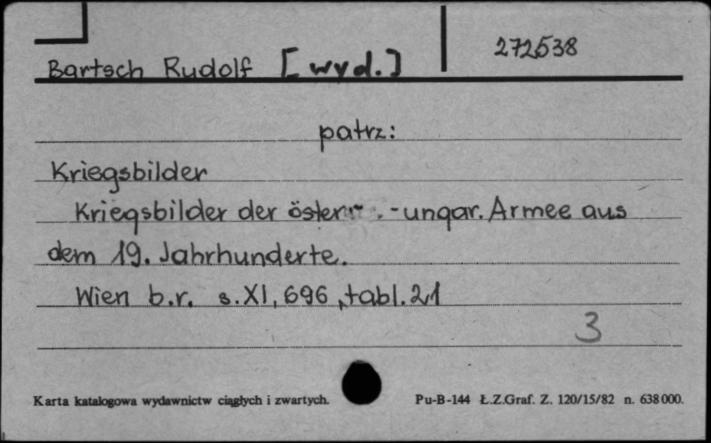 Bartsch Rudolf [wyd.] 272538
patrz:
Kriegsbilder
Kriegsbilder der österr.-ungar. Armee aus
dem 19. Jahrhunderte.
Wien b.r. s.XI, 696, tabl. 21
3
Karta katalogowa wydawnictw ciągłych i zwartych. Pu-B-144 Ł.Z.Graf. Z. 120/15/82 n. 638000.